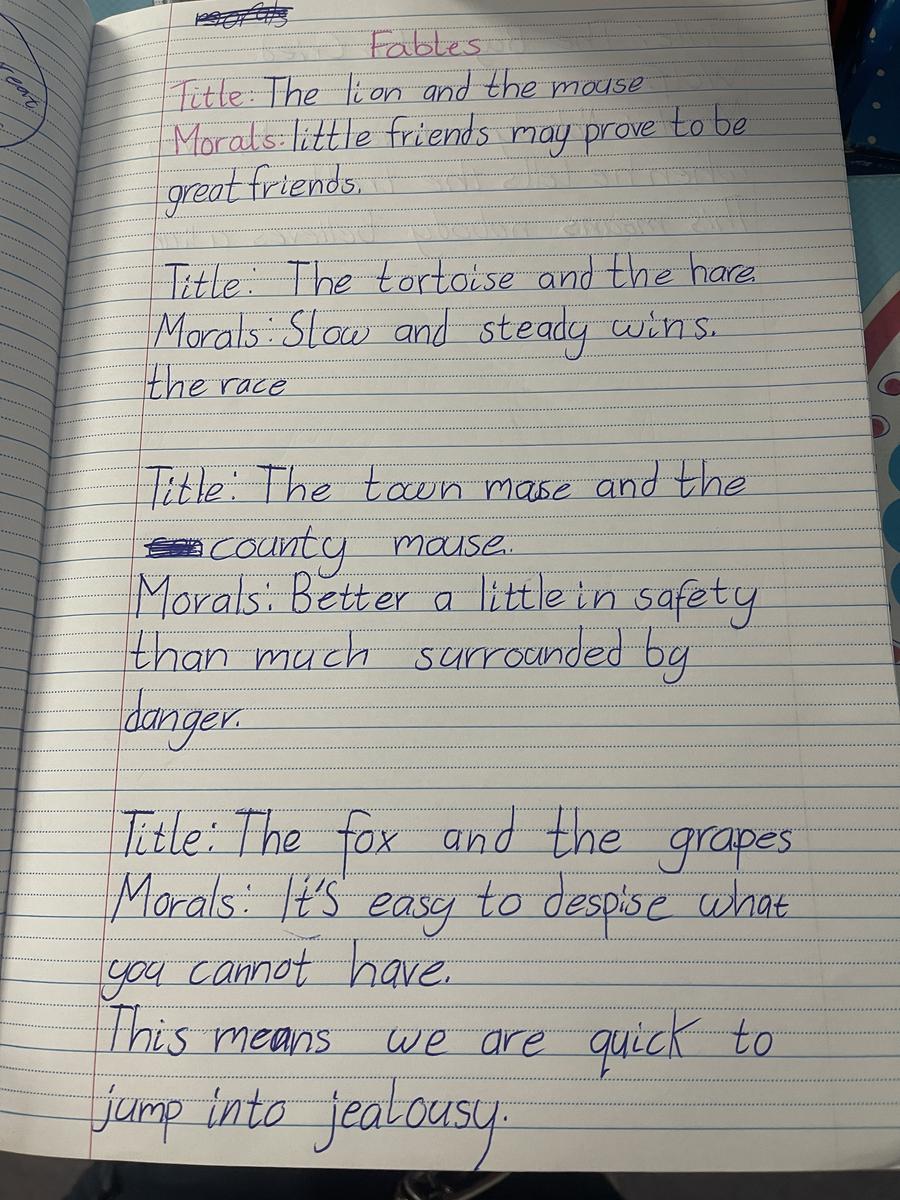 Fables
Title: The lion and the mouse
Morals: little friends may prove to be
great friends.
Title: The tortoise and the hare.
Morals: Slow and steady wins.
the race
Title: The town mase and the
county mouse.
Morals: Better a little in safety
than much surrounded by
danger.
Title: The fox and the grapes
Morals: It's easy to despise what
you cannot have.
This means we are quick to
jump into jealousy.